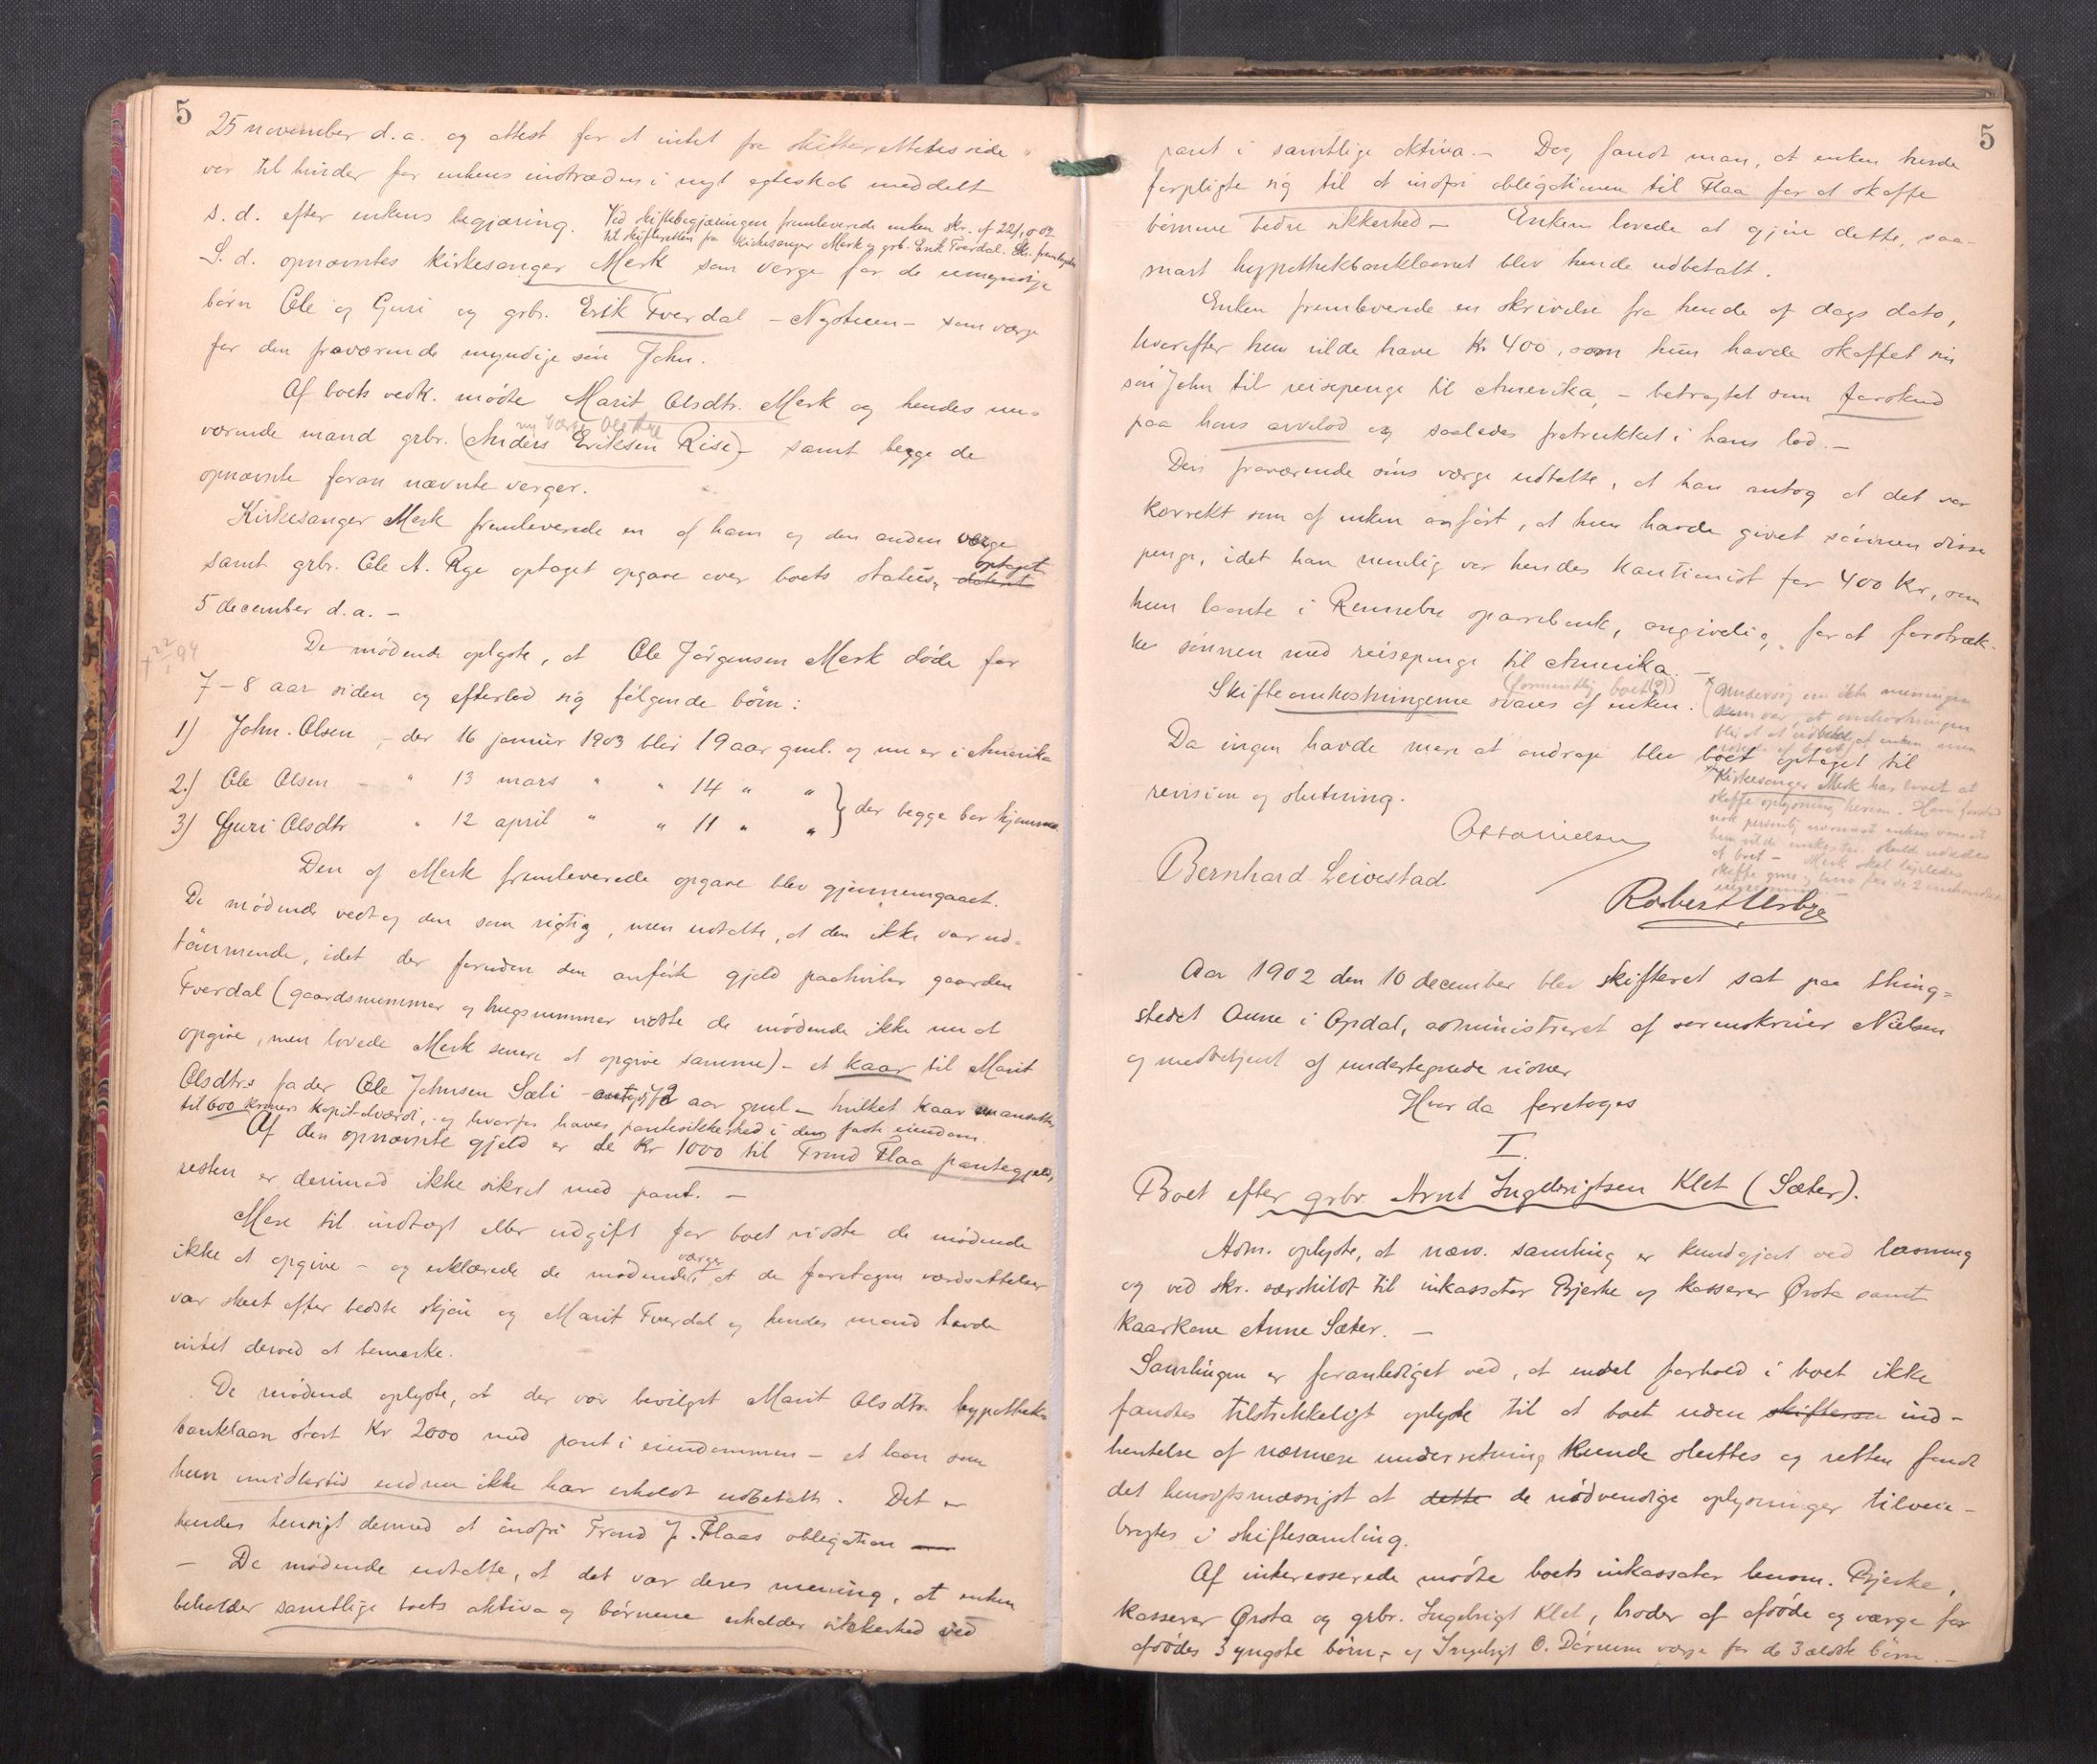 5
25 november d.a. og attest for at intet fra skifterettens side
var til hinder for enkens indtræden i nyt egteskab meddelt
s.d. efter enkens begjæring. Ved skiftebegjæringen fremleverede enken skr. af 22/10 02
til skifteretten fra kirkesanger Merk og grb. Erik Tverdal. Skr. fremlagdes
S.d. opnævntes kirkesanger Merk som verge for de umyndige
børn Ole og Guri og grb. Erik Tverdal - Nystuen - som værge
for den fraværende myndige søn John.
Af boets vedk. mødte Marit Olsdtr. Merk og hendes nu-
værende mand grbr. (Anders Eriksen Rise) - samt begge de
opnævnte foran nævnte verger.
Kirkesanger Merk fremleverede en af ham og den anden værge
samt grbr. Ole A. Rye optaget opgave over boets status, dateret optaget
5 december d.a. -
De mødende oplyste, at Ole Jörgensen Merk døde for
7-8 aar siden og efterlod sig følgende börn:
1) John Olsen, - der 16 januar 1903 blir 19 aar gml. og nu er i Amerika
2) Ole Olsen - " 13 mars " " 14 " "
3) Guri Olsdtr " 12 april " " 11 " " } der begge bor hjemme
Den af Merk fremleverede opgave blev gjennemgaaet.
De mødende vedtog den som rigtig, men udtalte, at den ikke var ud-
tömmende, idet der foruden den anførte gjeld paahviler gaarden
Tverdal (gaardsnummer og brugsnummer vidste de mødende ikke nu at
opgive, men lovede Merk senere at opgive samme) - et kaar til Marit
Olsdtrs fader Ole Johnsen Sæli - 72 aar gml - hvilket kaar man ansatte
til 600 kroners kapitalværdi, og hvorfor haves pantesikkerhed i den faste eiendom.
Af den opnævnte gjeld er de Kr 1000 til Trond Flaa pantegjeld,
resten er derimod ikke sikret med pant. -
Mere til indtægt eller udgift for boet vidste de mødende
ikke at opgive - og erklærede de mødende værger, at de foretagne værdsættelser
var skeet efter bedste skjøn og Marit Tverdal og hendes mand havde
intet derved at bemærke.
De mødende oplyste, at der var bevilget Marit Olsdtr. hypotheks
banklaan stort Kr 2000 med pant i eiendommen - et laan som
hun imidlertid endnu ikke har erholdt udbetalt. Det er
hendes hensigt dermed at indfri Trond J. Flaas obligation —
- De mødende udtalte, at det var deres mening, at enken
beholder samtlige boets aktiva og børnene erholder sikkerhed ved
5
pant i samtlige aktiva. - Dog fandt man, at enken burde
forpligte sig til at indfri obligationen til Flaa for at skaffe
börnene bedre sikkerhed - Enken lovede at gjøre dette, saa-
snart hypothekbanklaanet blev hende udbetalt.
Enken fremleverede en skrivelse fra hende af dags dato,
hvorefter hun vilde have Kr 400, som hun havde skaffet sin
søn John til reisepenge til Amerika, - betragtet som forskud
paa hans arvelod og saaledes fratrukket i hans lod. -
Den fraværende søns værge udtalte, at han antog at det var
korrekt som af enken anført, at hun havde givet sönnen disse
penge, idet han nemlig var hendes kautionist for 400 Kr, som
hun laante i Rennebu sparebank, angivelig, for at forstræk-
ke sönnen med reisepenge til Amerika. -
(formentlig boet(?))
Skifteomkostningerne svares af enken.
Da ingen havde mere at andrage blev boet optaget til
revision og slutning.
Kirkesanger Merk har lovet at
skaffe oplysning herom.
Otto Nielsen
Bernhard Leivestad
Robert Usbye
Aar 1902 den 10 december blev skifteret sat paa thing-
stedet Aune i Opdal, administreret af sorenskriver Nielsen
og medbetjent af undertegnede vidner
Hvor da foretoges
I.
Boet efter grbr. Arnt Ingebrigtsen Klet (Sæter).
Adm. oplyste, at nærv. samling er kundgjort ved læsning
og ved skr. særskildt til inkassator Bjerke og kasserer Ørsta samt
kaarkone Anne Sæter. -
Samlingen er foranlediget ved, at endel forhold i boet ikke
fandtes tilstrækkeligt oplyste til at boet uden skifteren ind-
hentelse af nærmere underretning kunde sluttes og retten fandt
det hensigtsmæssigst at dette de nödvendige oplysninger tilveie-
bragtes i skiftesamling.
Af interesserede mødte boets inkassator lensm. Bjerke,
kasserer Ørsta og grbr. Ingebrigt Klet, broder af afdøde og værge for
afdødes 3 yngste børn, - og Ingebrigt O. Dörum værge for de 3 ældste børn. -